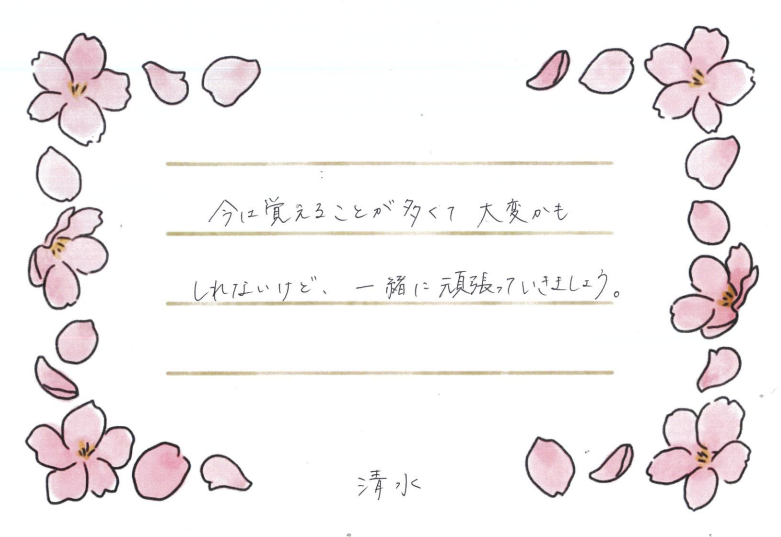 今は覚えることが多くて 大変かも
しれないけど、一緒に頑張っていきましょう。
清水